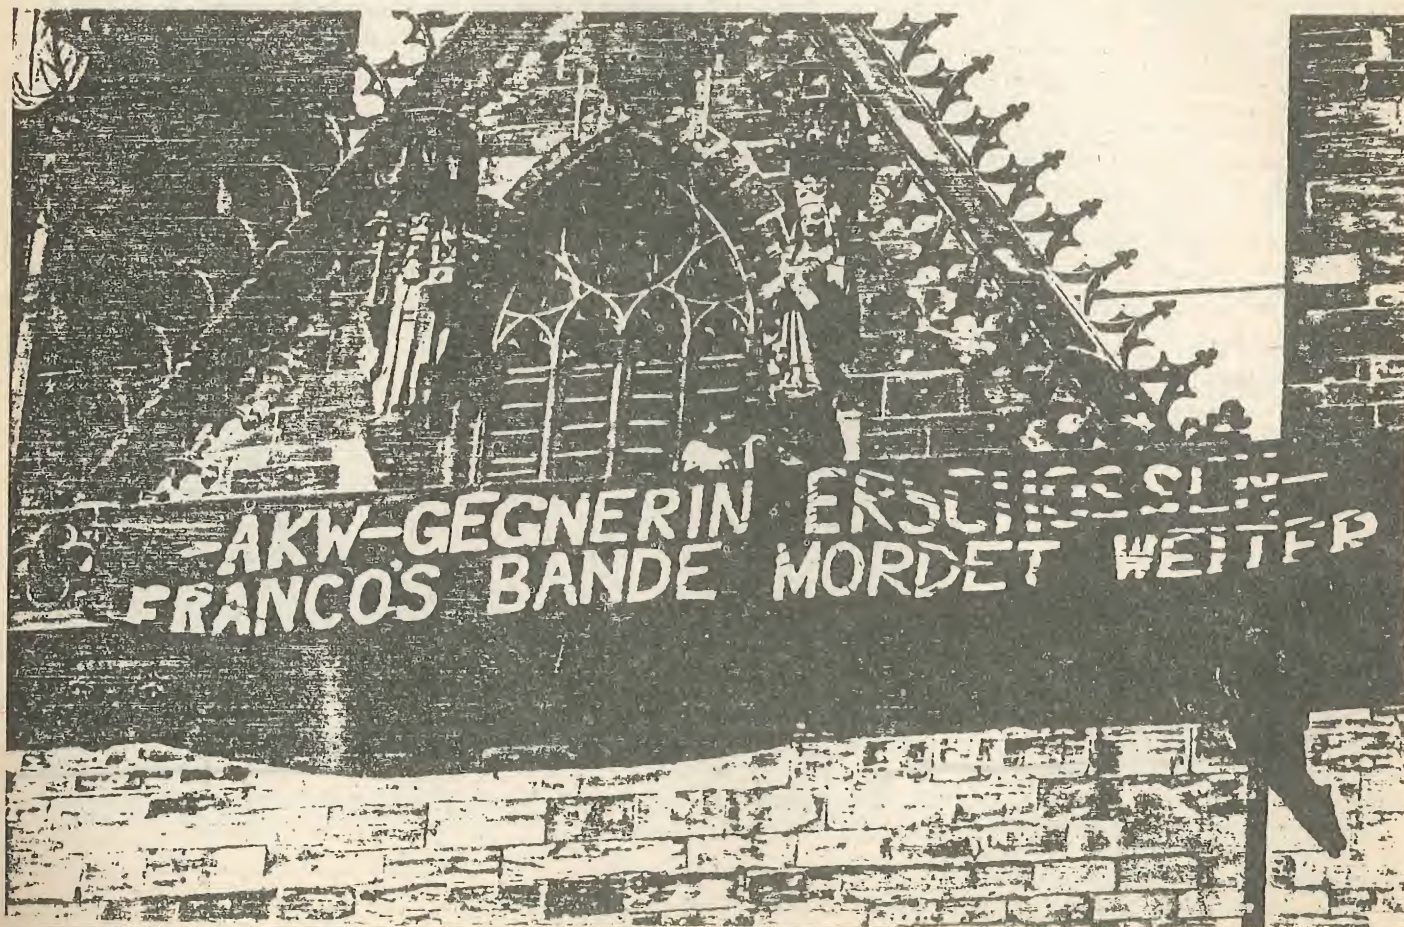 -AKW-GEGNERIN ERSCHOSSEN-
FRANCO'S BANDE MORDET WEITER